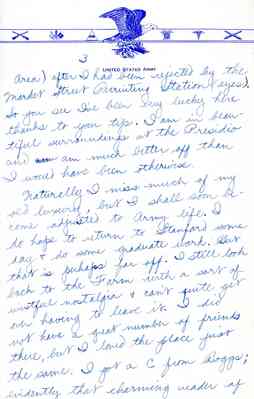 3
UNITED STATES ARMY
area) after I had been rejected by the
Market Street Recruiting Station (eyes).
So you see I've been very lucky here
thanks to your tips. I am in beau-
tiful surroundings at the Presidio
and am much better off than
I would have been otherwise.
Naturally I miss much of my
old luxury, but I shall soon be-
come adjusted to Army life. I
do hope to return to Stanford some
day & do some graduate work. But
that is perhaps far off. I still look
back to the Farm with a sort of
wistful nostalgia & can't quite get
over having to leave it. I did
not have a great number of friends
there, but I loved the place just
the same. I got a C from Boggs;
evidently that charming reader of